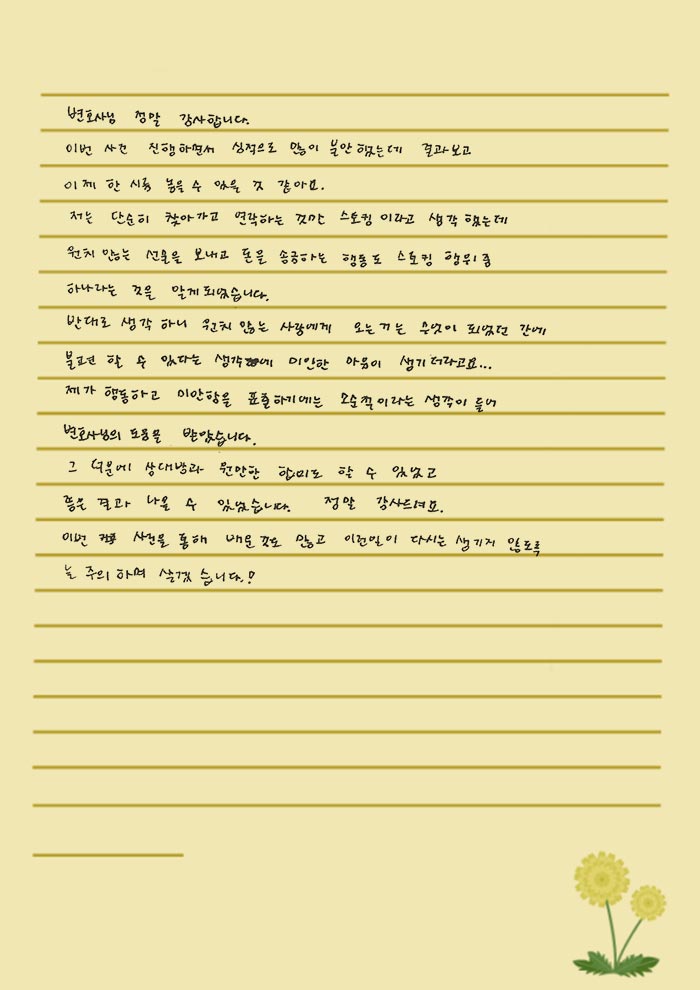 변호사님 정말 감사합니다.
이번 사건 진행하면서 심적으로 많이 불안했는데 결과보고
이제 한 시름 놓을 수 있을 것 같아요.
저는 단순히 찾아가고 연락하는 것만 스토킹이라고 생각했는데
원치 않는 선물을 보내고 돈을 송금하는 행동도 스토킹 행위 중
하나라는 것을 알게되었습니다.
반대로 생각 하니 원치 않는 사람에게 오는 거는 무엇이 되었던 간에
불편 할 수 있다는 생각에 미안한 마음이 생기더라고요...
제가 행동하고 미안함을 표출하기에는 모순적이라는 생각이 들어
변호사님의 도움을 받았습니다.
그 덕분에 상대방과 원만한 합의도 할 수 있었고
좋은 결과 나올 수 있었습니다. 정말 감사드려요.
이번 사건을 통해 배운것도 많고 이런일이 다시는 생기지 않도록
늘 주의 하며 살겠습니다.!